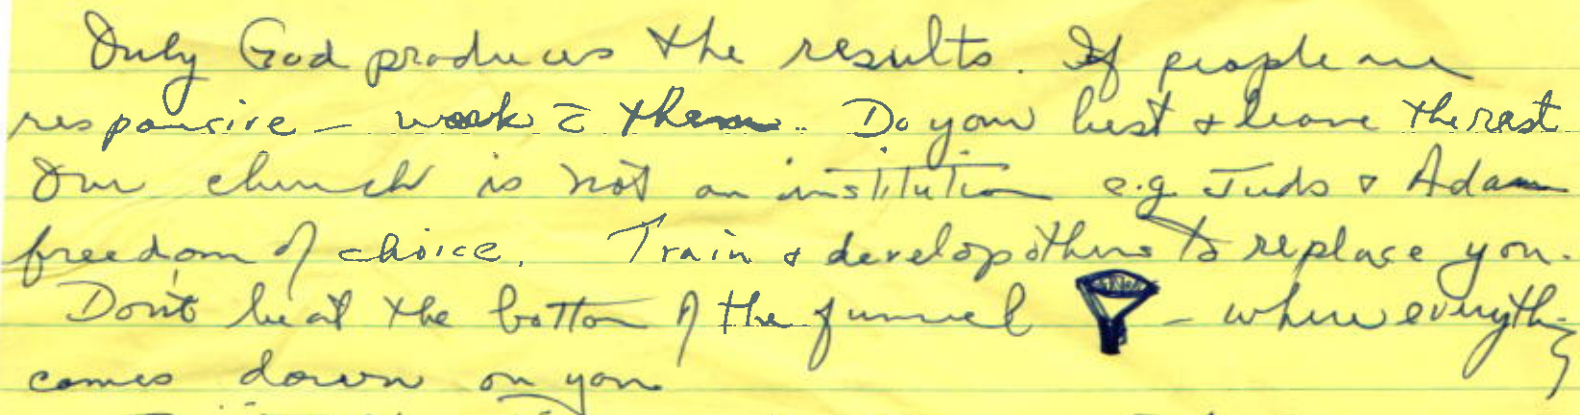 Only God produces the results. If people are
responsive – work c̄ them. Do your best & leave the rest
Our church is not an institution e.g. Juds & Adam
freedom of choice. Train & develop others to replace you.
Don't be at the bottom of the funnel – where everything
comes down on you